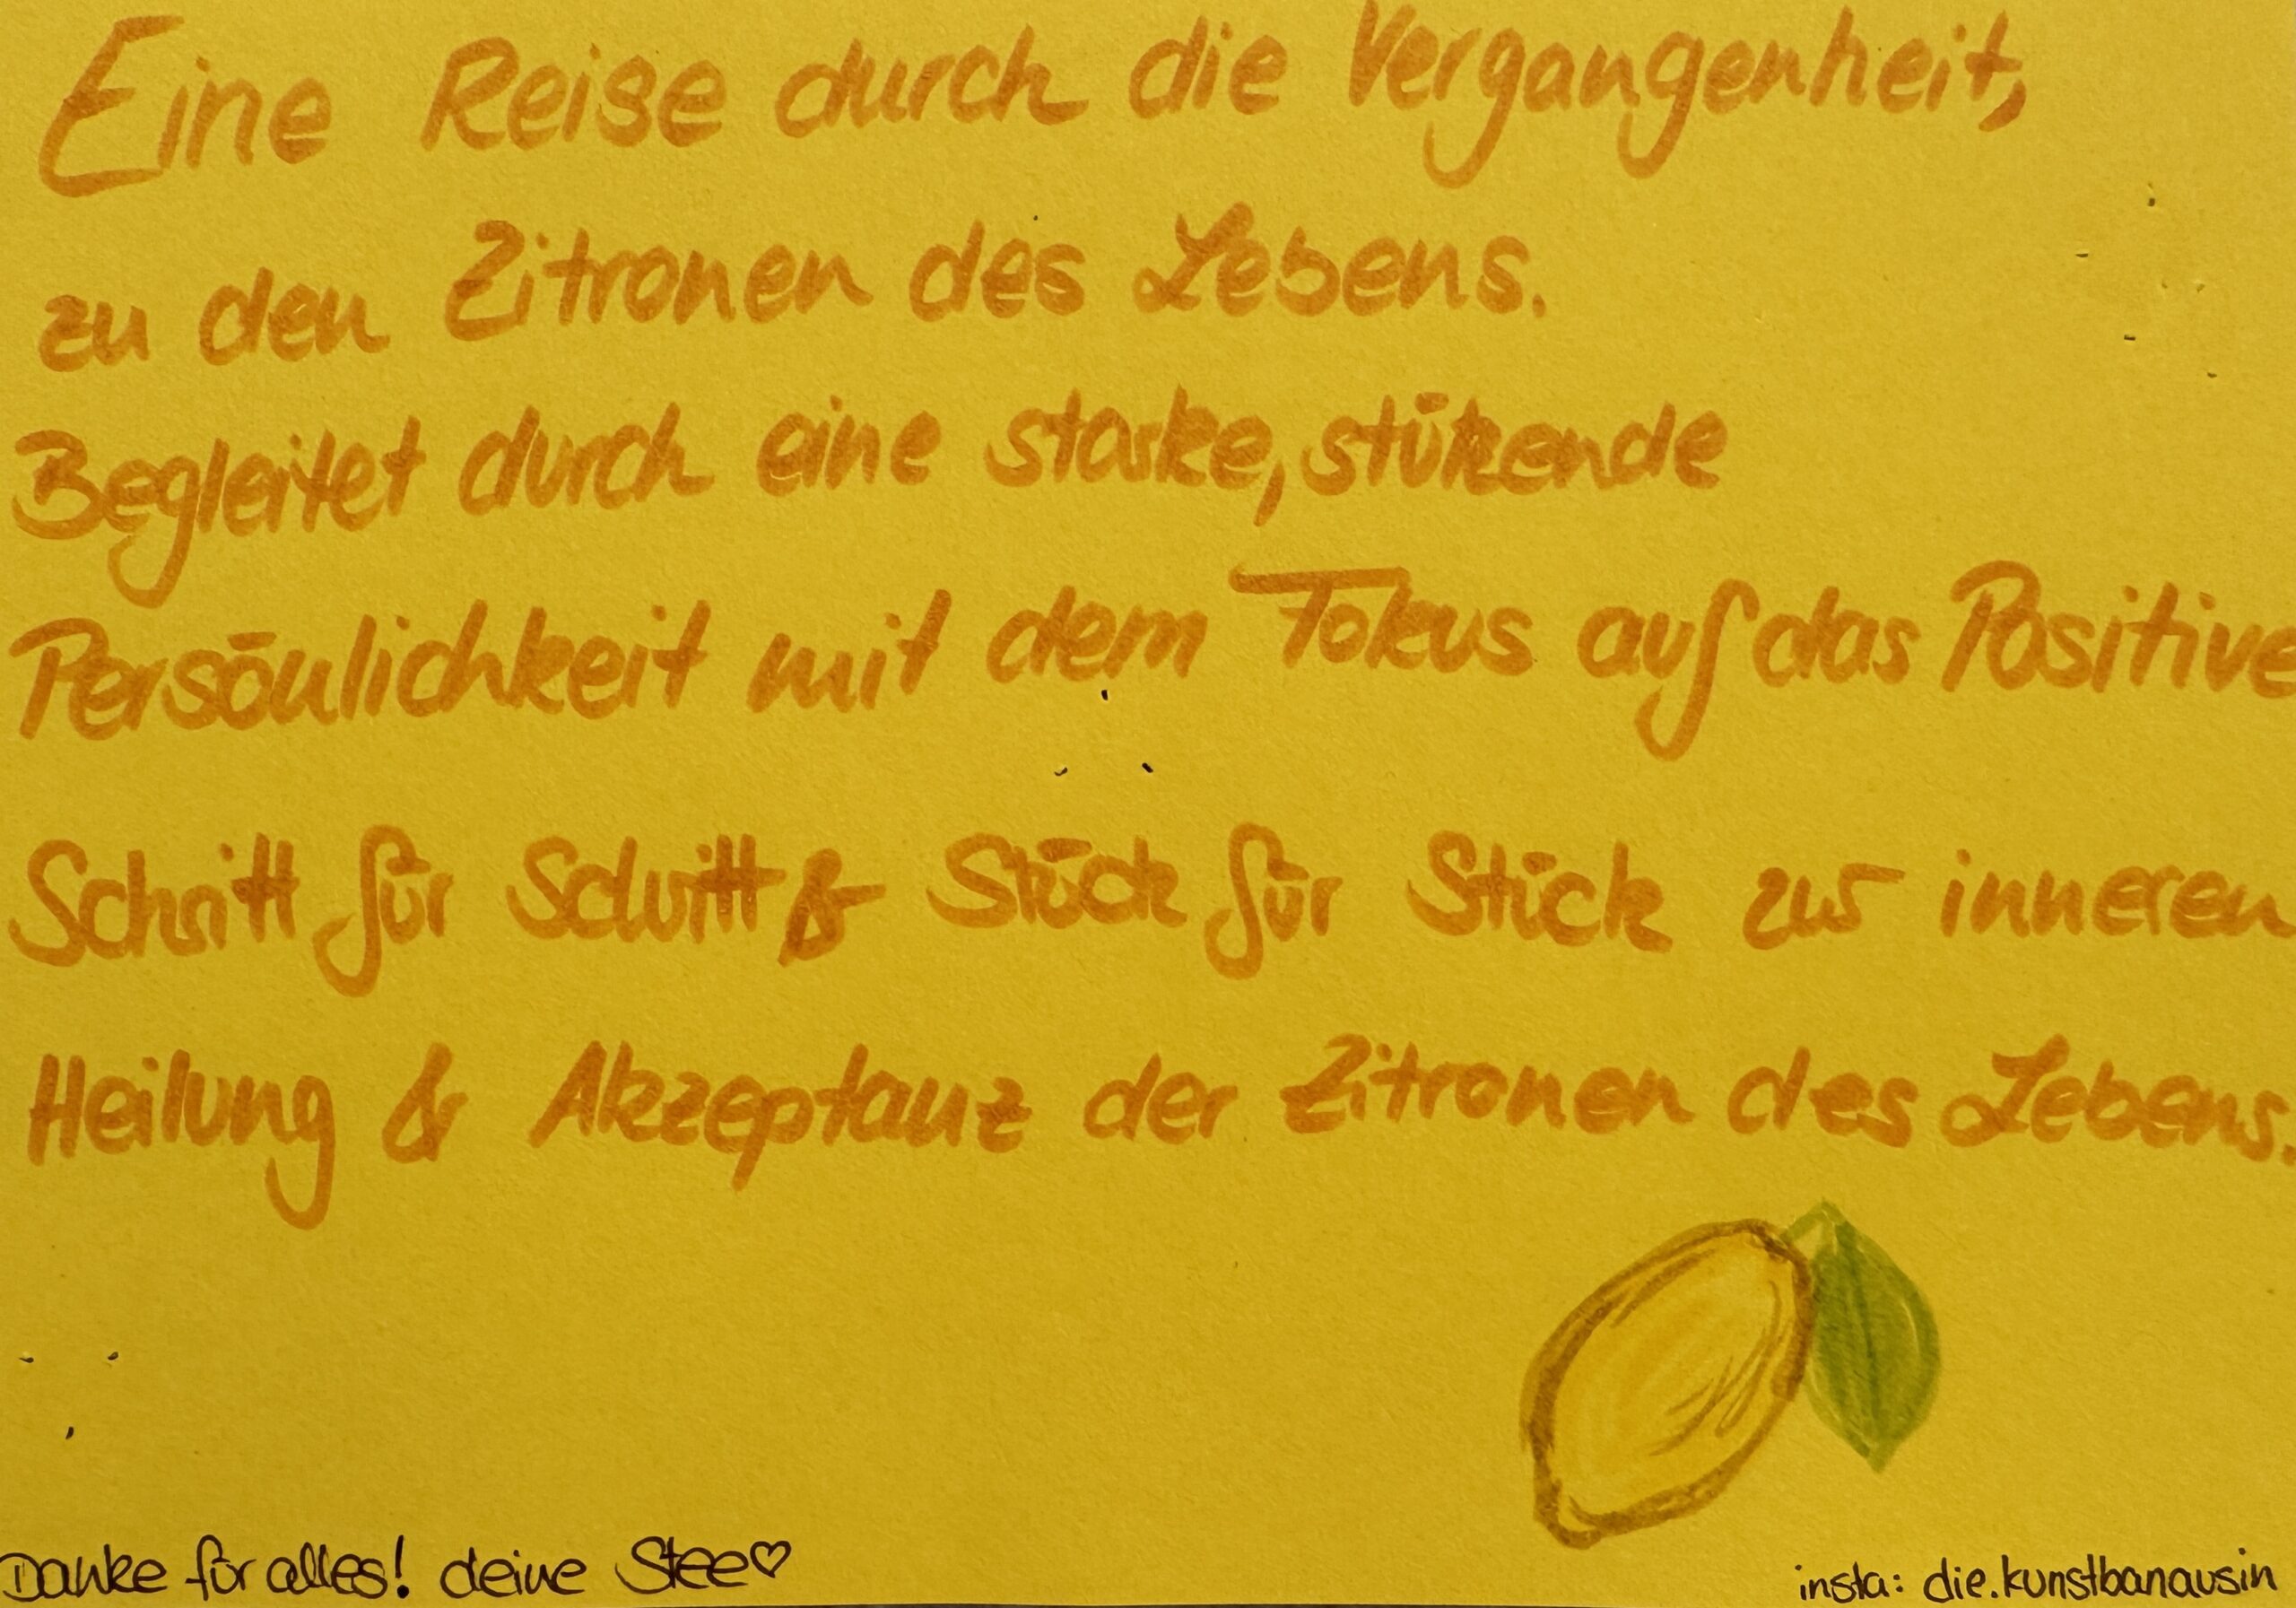 Eine Reise durch die Vergangenheit,
zu den Zitronen des Lebens.
Begleitet durch eine starke, stützende
Persönlichkeit mit dem Fokus auf das Positive
Schritt für Schritt & Stück für Stück zur inneren
Heilung & Akzeptanz der Zitronen des Lebens.
Danke für alles! deine Stee♡
insta: die.kunstbanausin